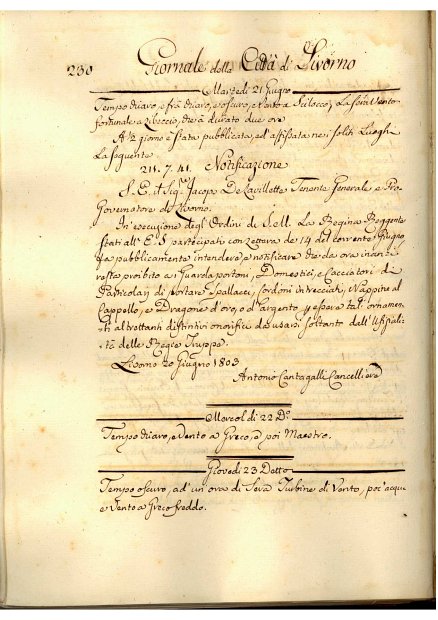 230 Giornale della Città di Livorno
Martedi 21 Giugno
Tempo chiaro, e frà chiaro, e oscuro, e Vento a Scilocco, La sera Vento
fortunale a Libeccio, che à durato due ore
A ½ giorno è stata pubblicata, ed affissata nei soliti Luoghi
La seguente
211. 7. 41. Notificazione
S. E. il Sig.re Jacopo De Lavillette Tenente Generale, e Pro
Governatore di Livorno.
In esecuzione degl'Ordini di S. M. La Regina Reggente
stati all' E. S. partecipati con Lettera de' 14 del corrente Giugno
fa pubblicamente intendere, e notificare che da ora innanzi
resta proibito ai Guardaportoni, Domestici, e Cacciatori di
Particolari di portare Spallacci, Cordoni intrecciati, Nappine al
Cappello, e Dragone d'oro, o d'argento, per essere tali ornamen-
ti altrettanti distintivi onorifici da usarsi soltanto dall' Ufiziali-
tà delle Regie Truppe.
Livorno 20 Giugno 1803
Antonio Cantagalli Cancelliere
Mercoldi 22 D.o
Tempo chiaro, e Vento a Greco, e poi Maestro.
Giovedi 23 Detto
Tempo oscuro, ad' un ora di Sera Turbine di Vento, poc' acqua
e Vento a Greco freddo.